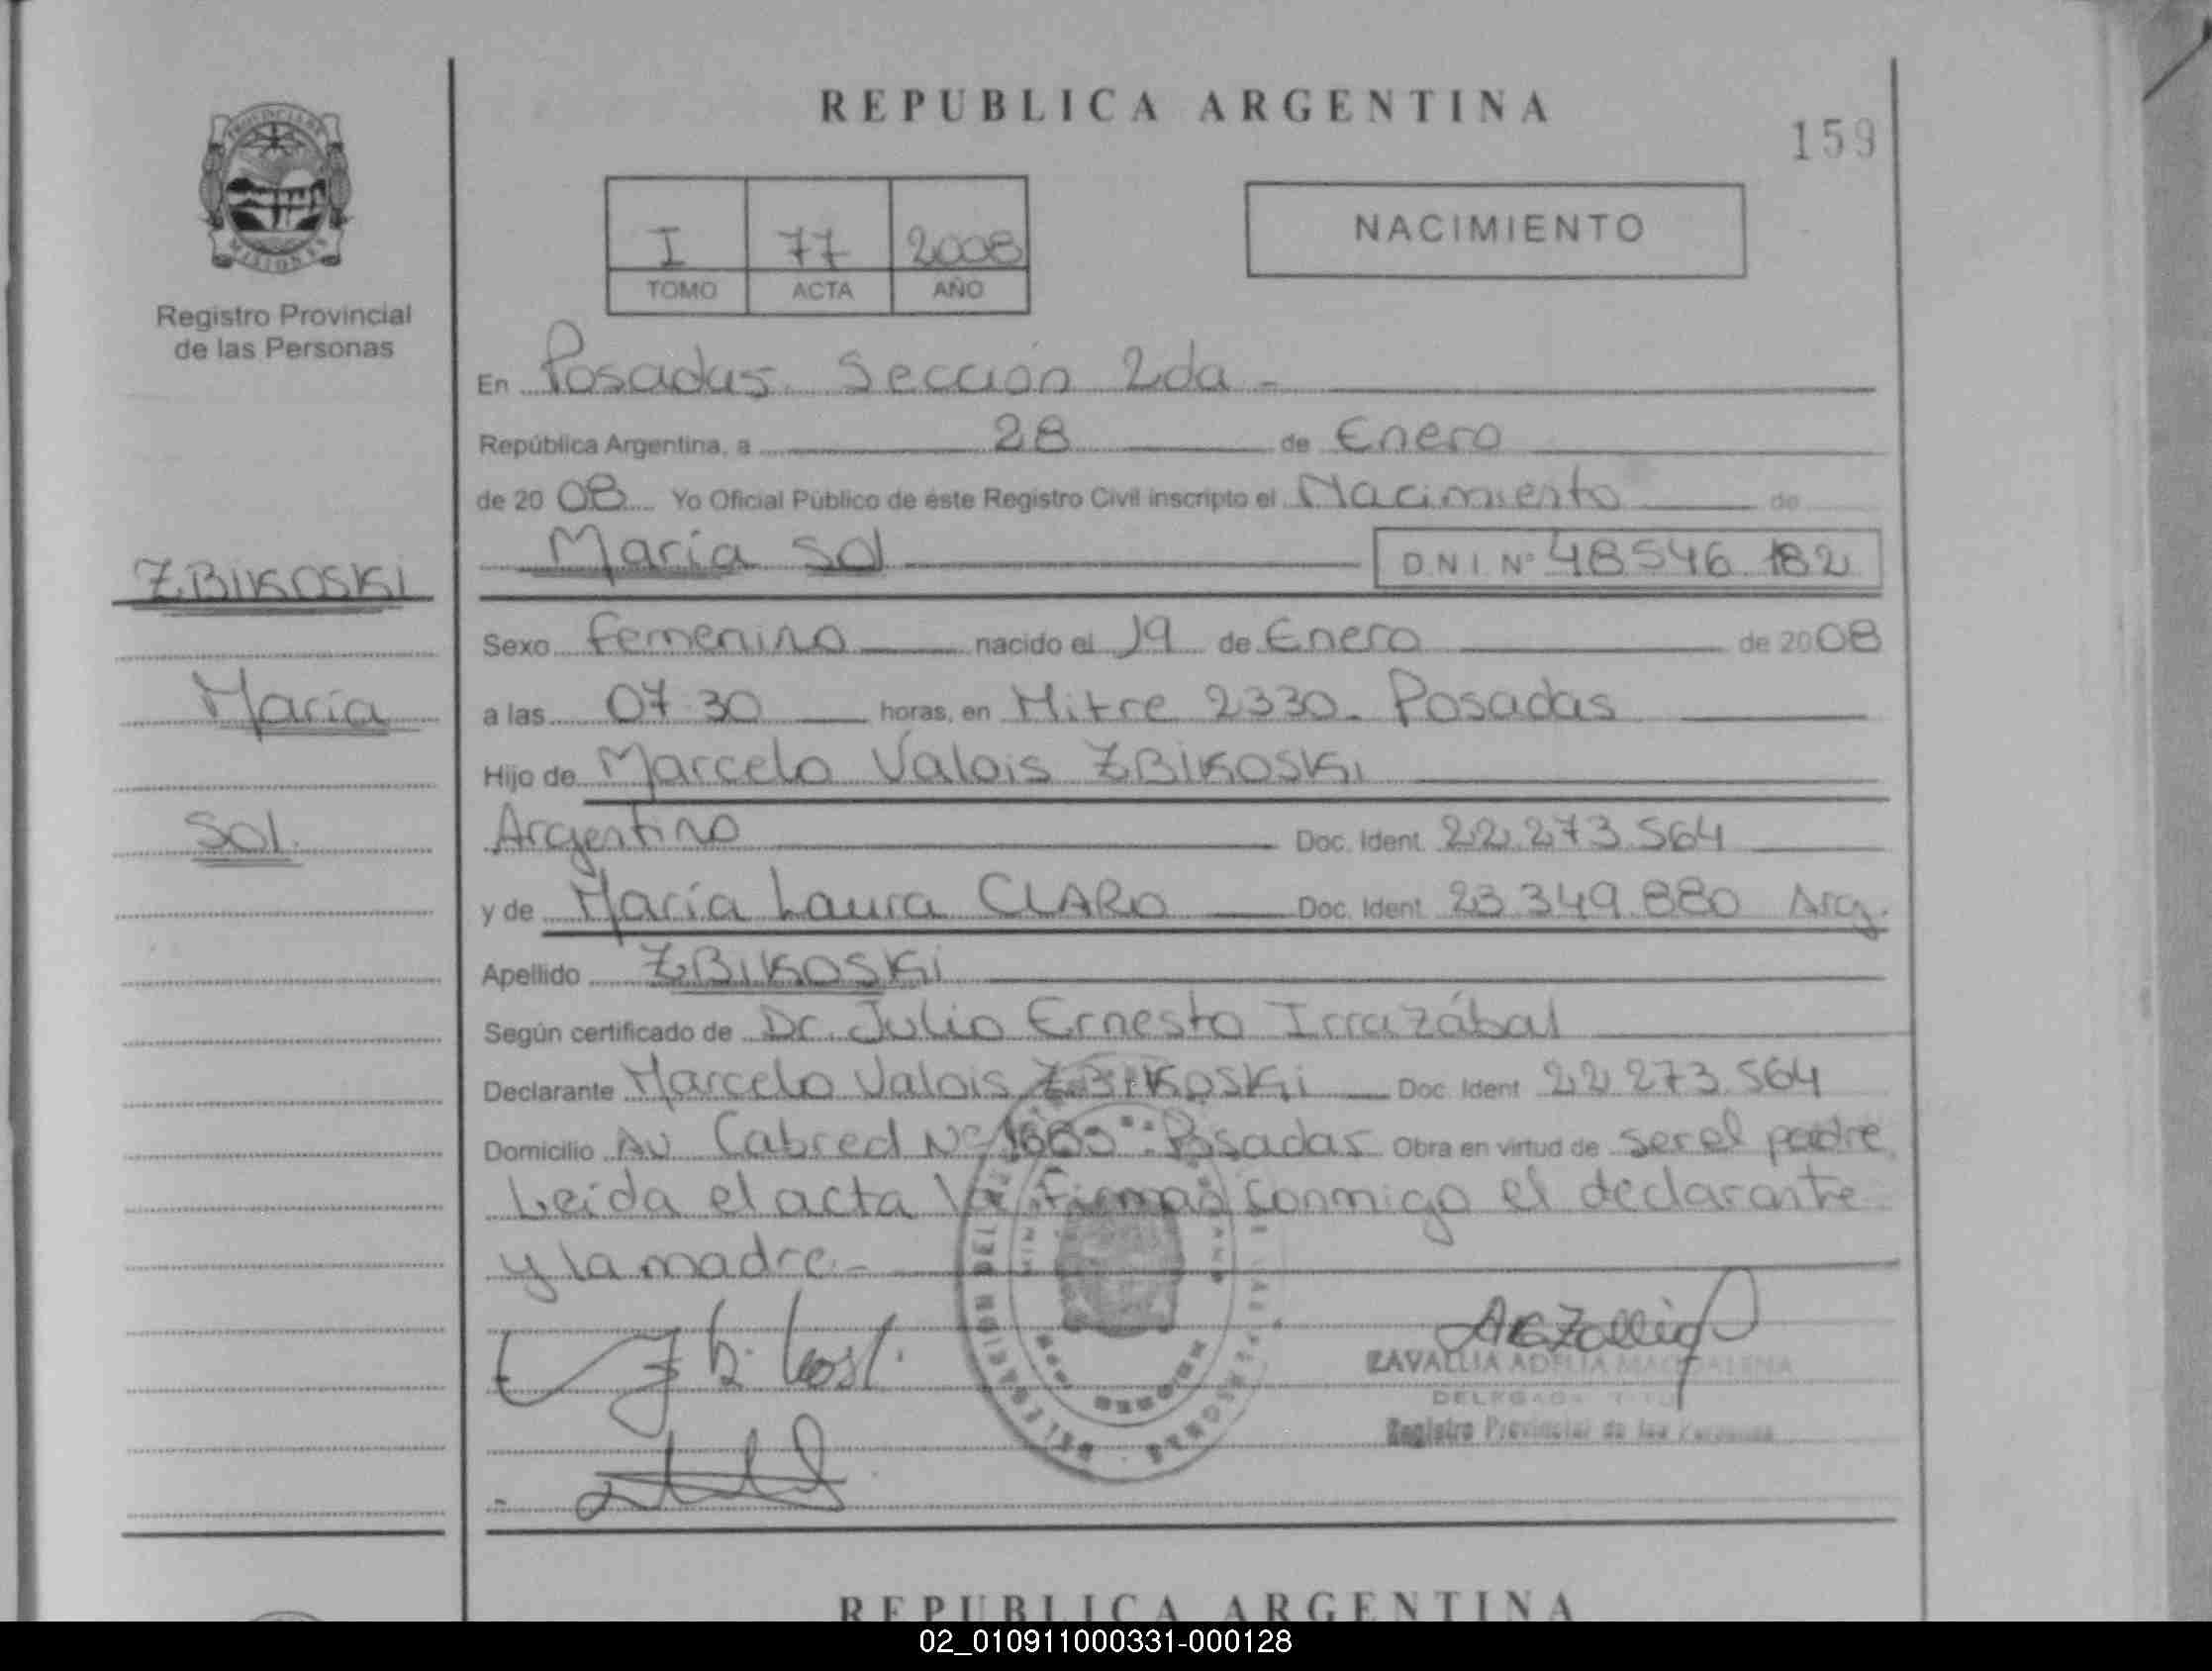 REPUBLICA ARGENTINA
159
PROVINCIA DE
MISIONES
Registro Provincial
de las Personas
I 77 2008
TOMO ACTA AÑO
NACIMIENTO
En Posadas. Sección 2da -
República Argentina, a 28 de Enero
de 2008 Yo Oficial Público de éste Registro Civil inscripto el Nacimiento de
María Sol D N I Nº 48546 182
ZBIKOSKI
María
Sol.
Sexo femenino nacido el 19 de Enero de 2008
a las 07 30 horas, en Mitre 2330. Posadas
Hijo de Marcelo Valois ZBIKOSKI
Argentino Doc. Ident 22.273.564
y de María Laura CLARO Doc. Ident 23.349.880 Arg.
Apellido ZBIKOSKI
Según certificado de Dr. Julio Ernesto Irrazábal
Declarante Marcelo Valois ZBIKOSKI Doc. Ident 22 273.564
Domicilio Av Cabred Nº Posadas Obra en virtud de ser el padre
Leida el acta la conmigo el declarante
y la madre.-
ZAVALLIA ADELIA MAGDALENA
Registro Provincial de las Personas
REPUBLICA ARGENTINA
02_010911000331-000128